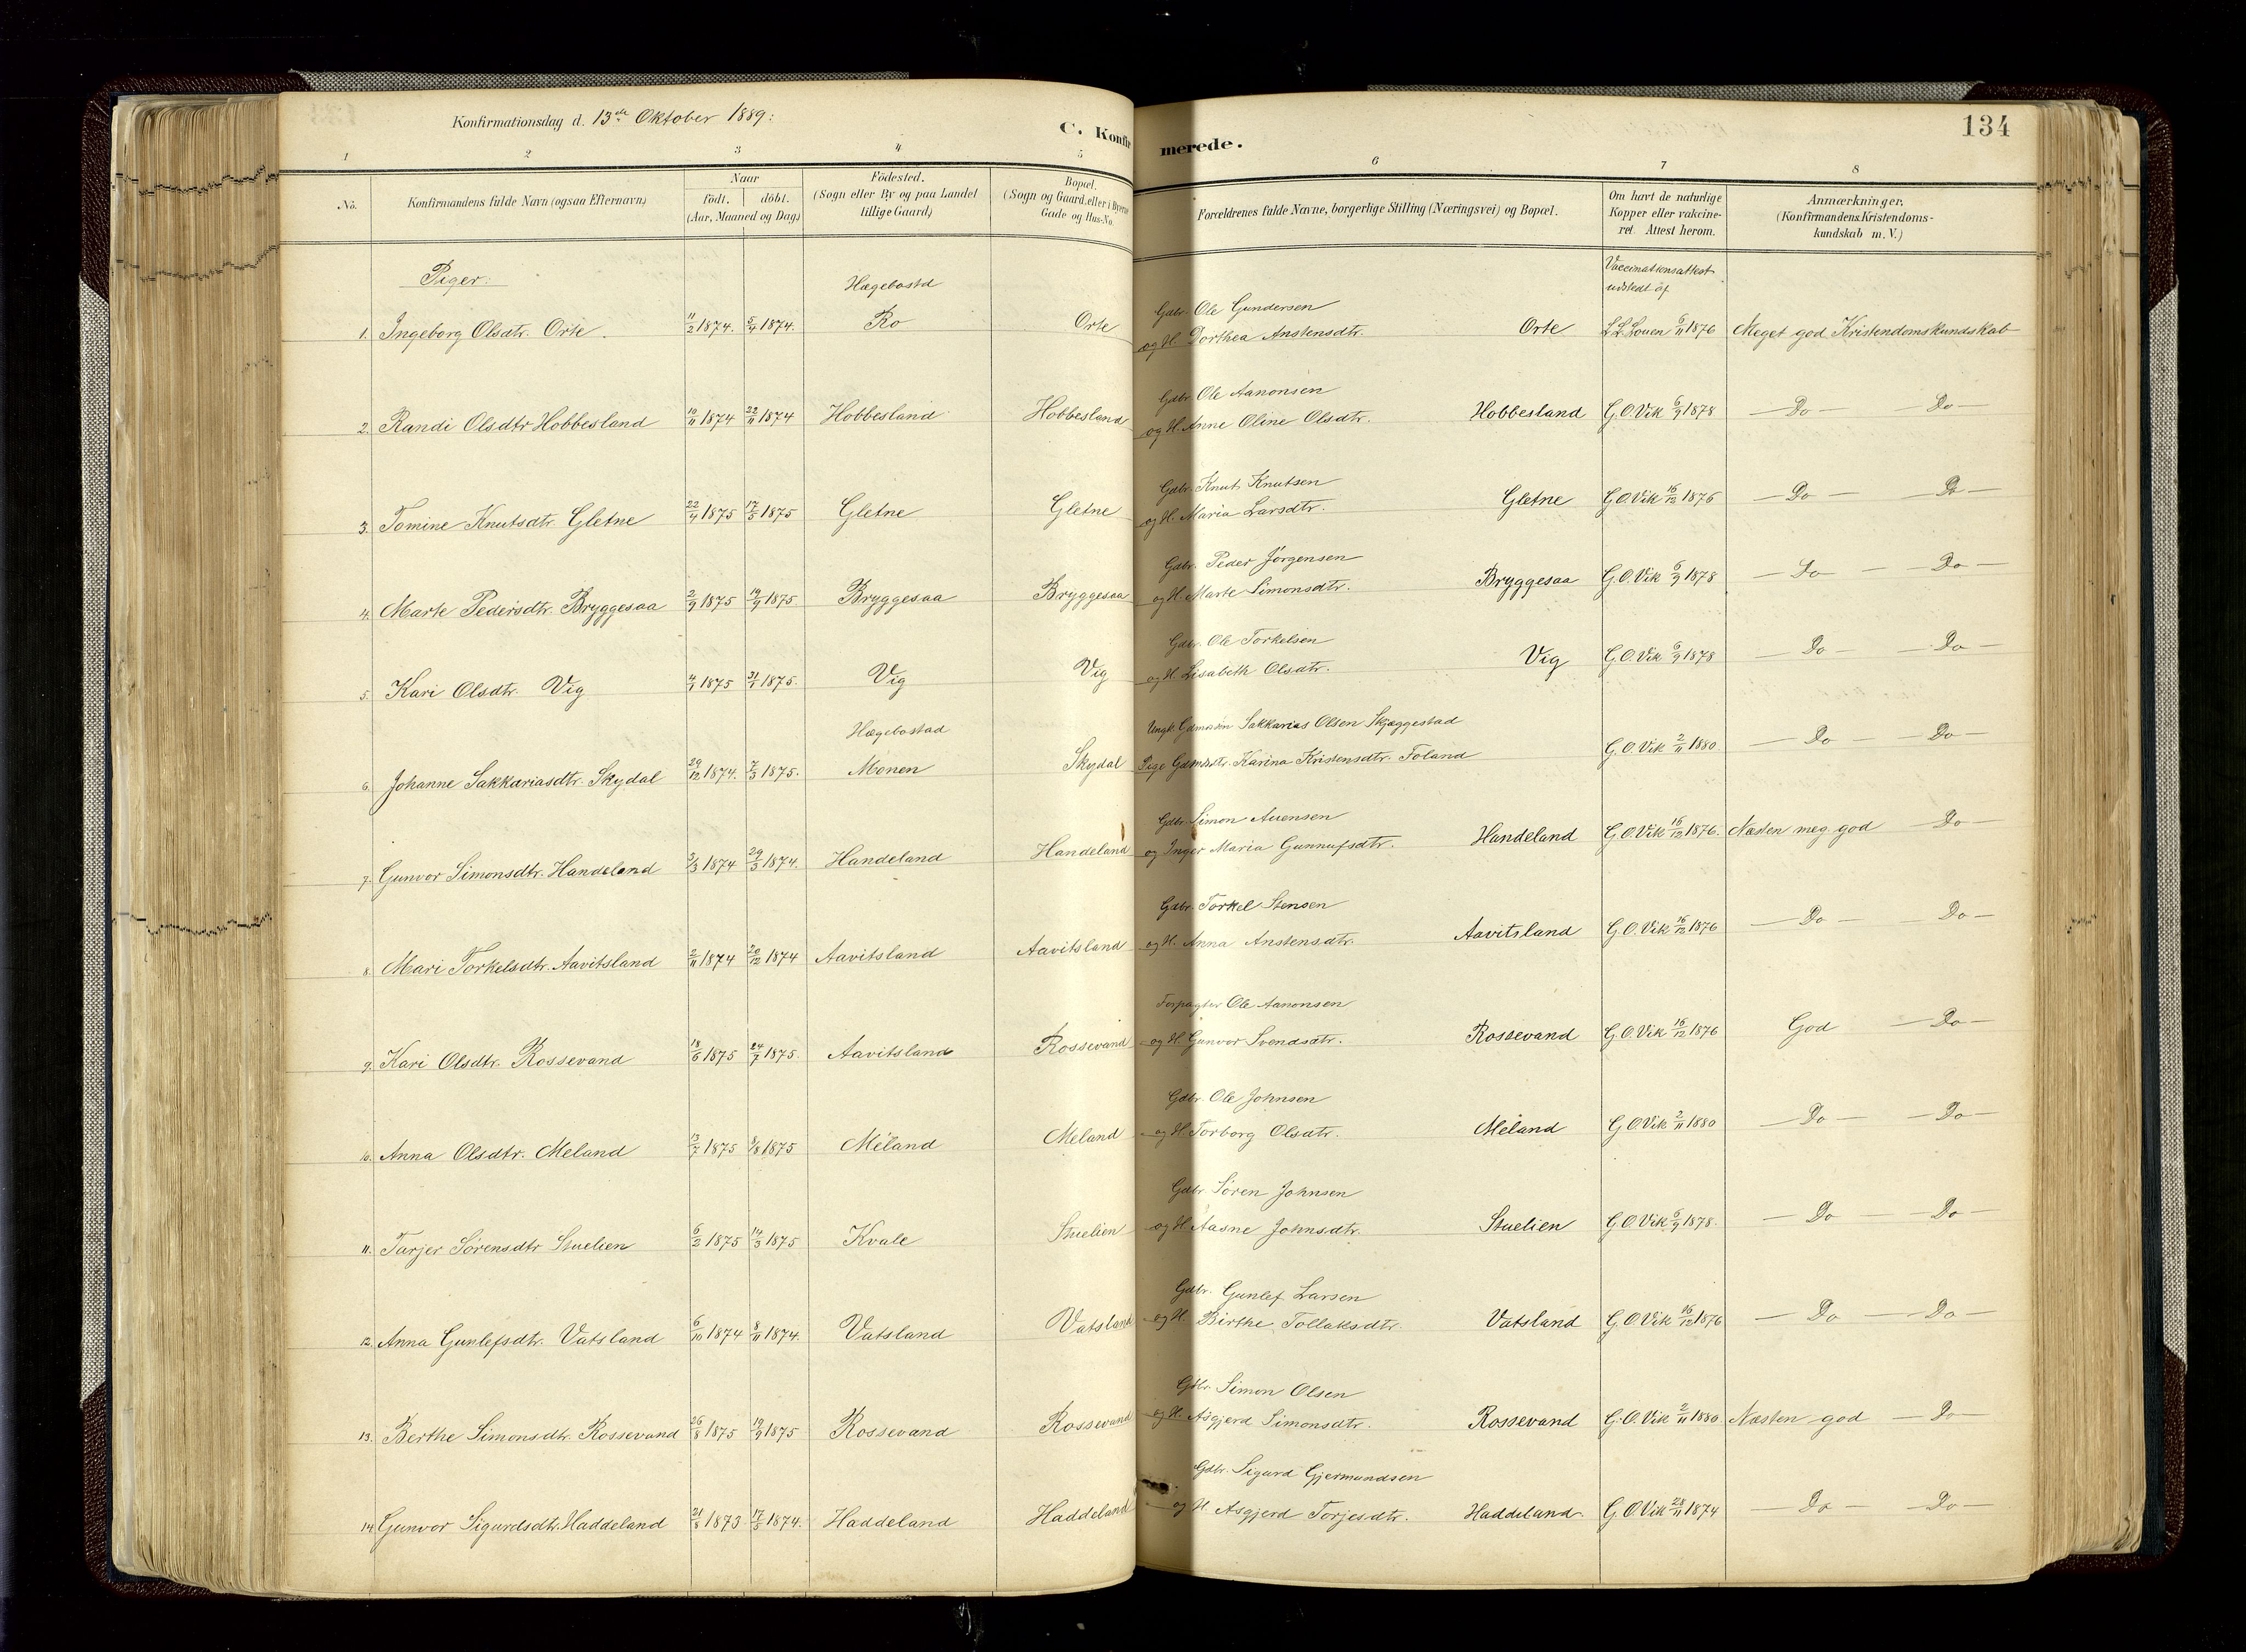 Konfirmationsdag d. 13de Oktober 1889:
C. Konfirmerede.
134
1 2 3 4 5 6 7 8
No.
Konfirmandens fulde Navn (ogsaa Efternavn)
Naar
födt. döbt.
(Aar, Maaned og Dag)
Födested.
(Sogn eller By og paa Landet
tillige Gaard)
Bopæl.
(Sogn og Gaard, eller i Byerne
Gade og Hus-No.
Forældrenes fulde Navne, borgerlige Stilling (Næringsvei) og Bopæl.
Om havt de naturlige
Kopper eller vakcine-
ret. Attest herom.
Anmærkninger.
(Konfirmandens Kristendoms-
kundskab m. V.)
Piger:
Hægebostd
Vaccinationsattest
udstedt af
Gdbr. Ole Gundersen
1. Ingeborg Olsdtr. Orte 11/2 1874. 5/4 1874. Ro Orte og H. Dorthea Anstensdtr. Orte L.L. Louen 6/11 1876 Meget god Kristendomskundskab
Gdbr. Ole Aanonsen
2. Randi Olsdtr Hobbesland 10/11 1874 22/11 1874 Hobbesland Hobbesland og H. Anne Oline Olsdtr. Hobbesland G.O. Vik 6/9 1878 — Do — — Do —
Gdbr. Knut Knutsen
3. Tomine Knutsdtr. Gletne 22/4 1875 17/5 1875 Gletne Gletne og H. Maria Larsdtr. Gletne G.O. Vik 16/12 1876 — Do — — Do —
Gdbr. Peder Jörgensen
4. Marte Pedersdtr. Bryggesaa 2/9 1875 19/9 1875 Bryggesaa Bryggesaa og H. Marte Simonsdtr. Bryggesaa G.O. Vik 6/9 1878 — Do — — Do —
Gdbr. Ole Torkelsen
5. Kari Olsdtr. Vig 4/1 1875 31/1 1875. Vig Vig og H. Lisabeth Olsdtr. Vig G.O. Vik 6/9 1878 — Do — — Do —
Hægebostad
Ungk. Gdmdsön Sakkarias Olsen Skjæggestad
6. Johanne Sakkariasdtr. Skydal 29/12 1874. 7/3 1875. Monen Skydal Pige Gdmdstr. Karina Kristensdtr. Foland G.O. Vik 2/11 1880 — Do — — Do —
Gdbr. Simon Auensen
7. Gunvor Simonsdtr. Handeland 3/3 1874 29/3 1874. Handeland Handeland og Inger Maria Gunnufsdtr. Handeland G.O. Vik 16/12 1876. Næsten meg. god — Do —
Gdbr. Torkel Stensen
8. Mari Torkelsdtr. Aavitsland 2/11 1874 20/12 1874 Aavitsland Aavitsland og H. Anna Anstensdtr. Aavitsland G.O. Vik 16/12 1876 — Do — — Do —
Forpagter Ole Aanonsen
9. Kari Olsdtr. Rossevand 18/6 1875 24/7 1875. Aavitsland Rossevand og H. Gunvor Svendsdtr. Rossevand G.O. Vik 16/12 1876 God — Do —
Gdbr. Ole Johnsen
10. Anna Olsdtr. Meland 13/7 1875 8/8 1875 Meland Meland og H. Torborg Olsdtr. Meland G.O. Vik 2/11 1880 — Do — — Do —
Gdbr. Sören Johnsen
11. Tarjer Sörensdtr Stuelien 6/2 1875 14/3 1875 Kvale Stuelien og H. Aasne Johnsdtr. Stuelien G.O. Vik 6/9 1878. — Do — — Do —
Gdbr. Gunlef Larsen
12. Anna Gunlefsdtr. Vatsland 6/10 1874 8/11 1874. Vatsland Vatsland og H. Birthe Tollaksdtr. Vatsland G.O. Vik 16/12 1876 — Do — — Do —
Gdbr. Simon Olsen
13. Berthe Simonsdtr. Rossevand 26/8 1875 19/9 1875 Rossevand Rossevand og H. Asgjerd Simonsdtr. Rossevand G.O. Vik 2/11 1880 Næsten god — Do
Gdbr. Sigurd Gjermundsen
14. Gunvor Sigurdsdtr. Haddeland 21/8 1873 17/5 1874. Haddeland Haddeland og H. Asgjerd Torjesdtr. Haddeland. G.O. Vik 28/11 1874 — Do — — Do —